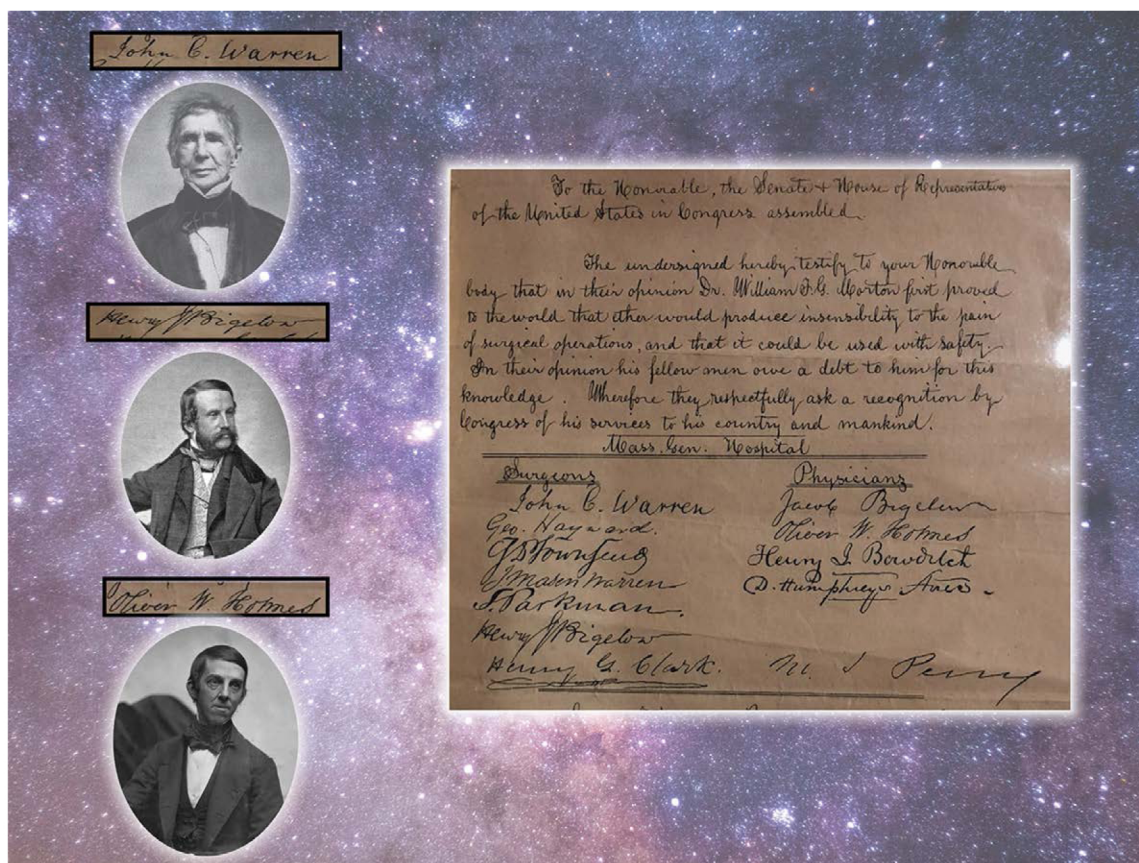 John C. Warren
Henry J Bigelow
Oliver W. Holmes
To the Honorable, the Senate & House of Representatives
of the United States in Congress assembled.
The undersigned hereby testify to your Honorable
body that in their opinion Dr. William T. G. Morton first proved
to the world that ether would produce insensibility to the pain
of surgical operations, and that it could be used with safety.
In their opinion his fellow men owe a debt to him for this
knowledge. Wherefore they respectfully ask a recognition by
Congress of his services to his country and mankind.
Mass. Gen. Hospital
Surgeons
John C. Warren
Geo. Hayward.
Townsend
J Mason Warren
S. Parkman.
Henry J Bigelow
Henry G. Clark.
Physicians
Jacob Bigelow
Oliver W. Holmes
Henry I. Bowditch
D. Humphreys
M. S. Perry